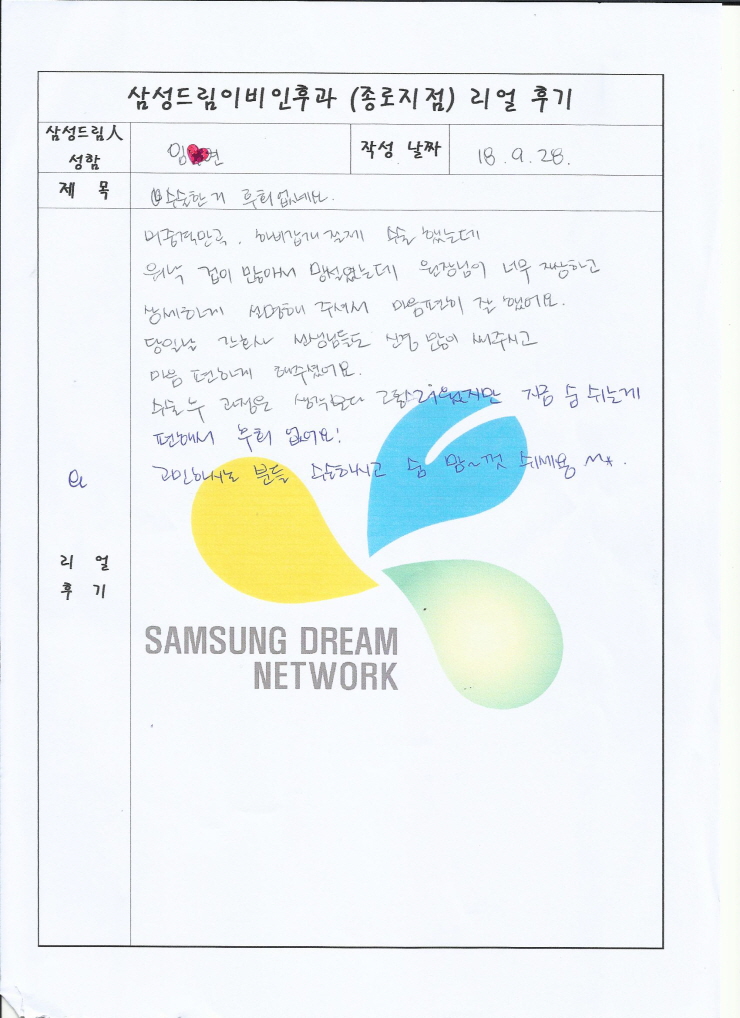 삼성드림이비인후과 (종로지점) 리얼 후기
삼성드림人
성함
임 연
작성 날짜
18. 9. 28.
제 목
수술한거 후회없네요.
비중격만곡, 하비갑개절제 수술 했는데
워낙 겁이 많아서 망설였는데 원장님이 너무 자상하고
상세하게 설명해 주셔서 마음편히 잘 했어요.
당일날 간호사 선생님들도 신경 많이 써주시고
마음 편하게 해주셨어요.
수술 후 과정은 생각보다 고통스러웠지만 지금 숨 쉬는게
편해서 후회 없어요!
고민하시는 분들 수술하시고 숨 맘~껏 쉬세용 ^^*.
리 얼
후 기
SAMSUNG DREAM
NETWORK